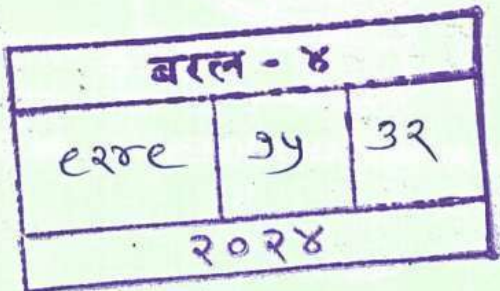 बरल - ४
९२४९ १५ ३२
२०२४